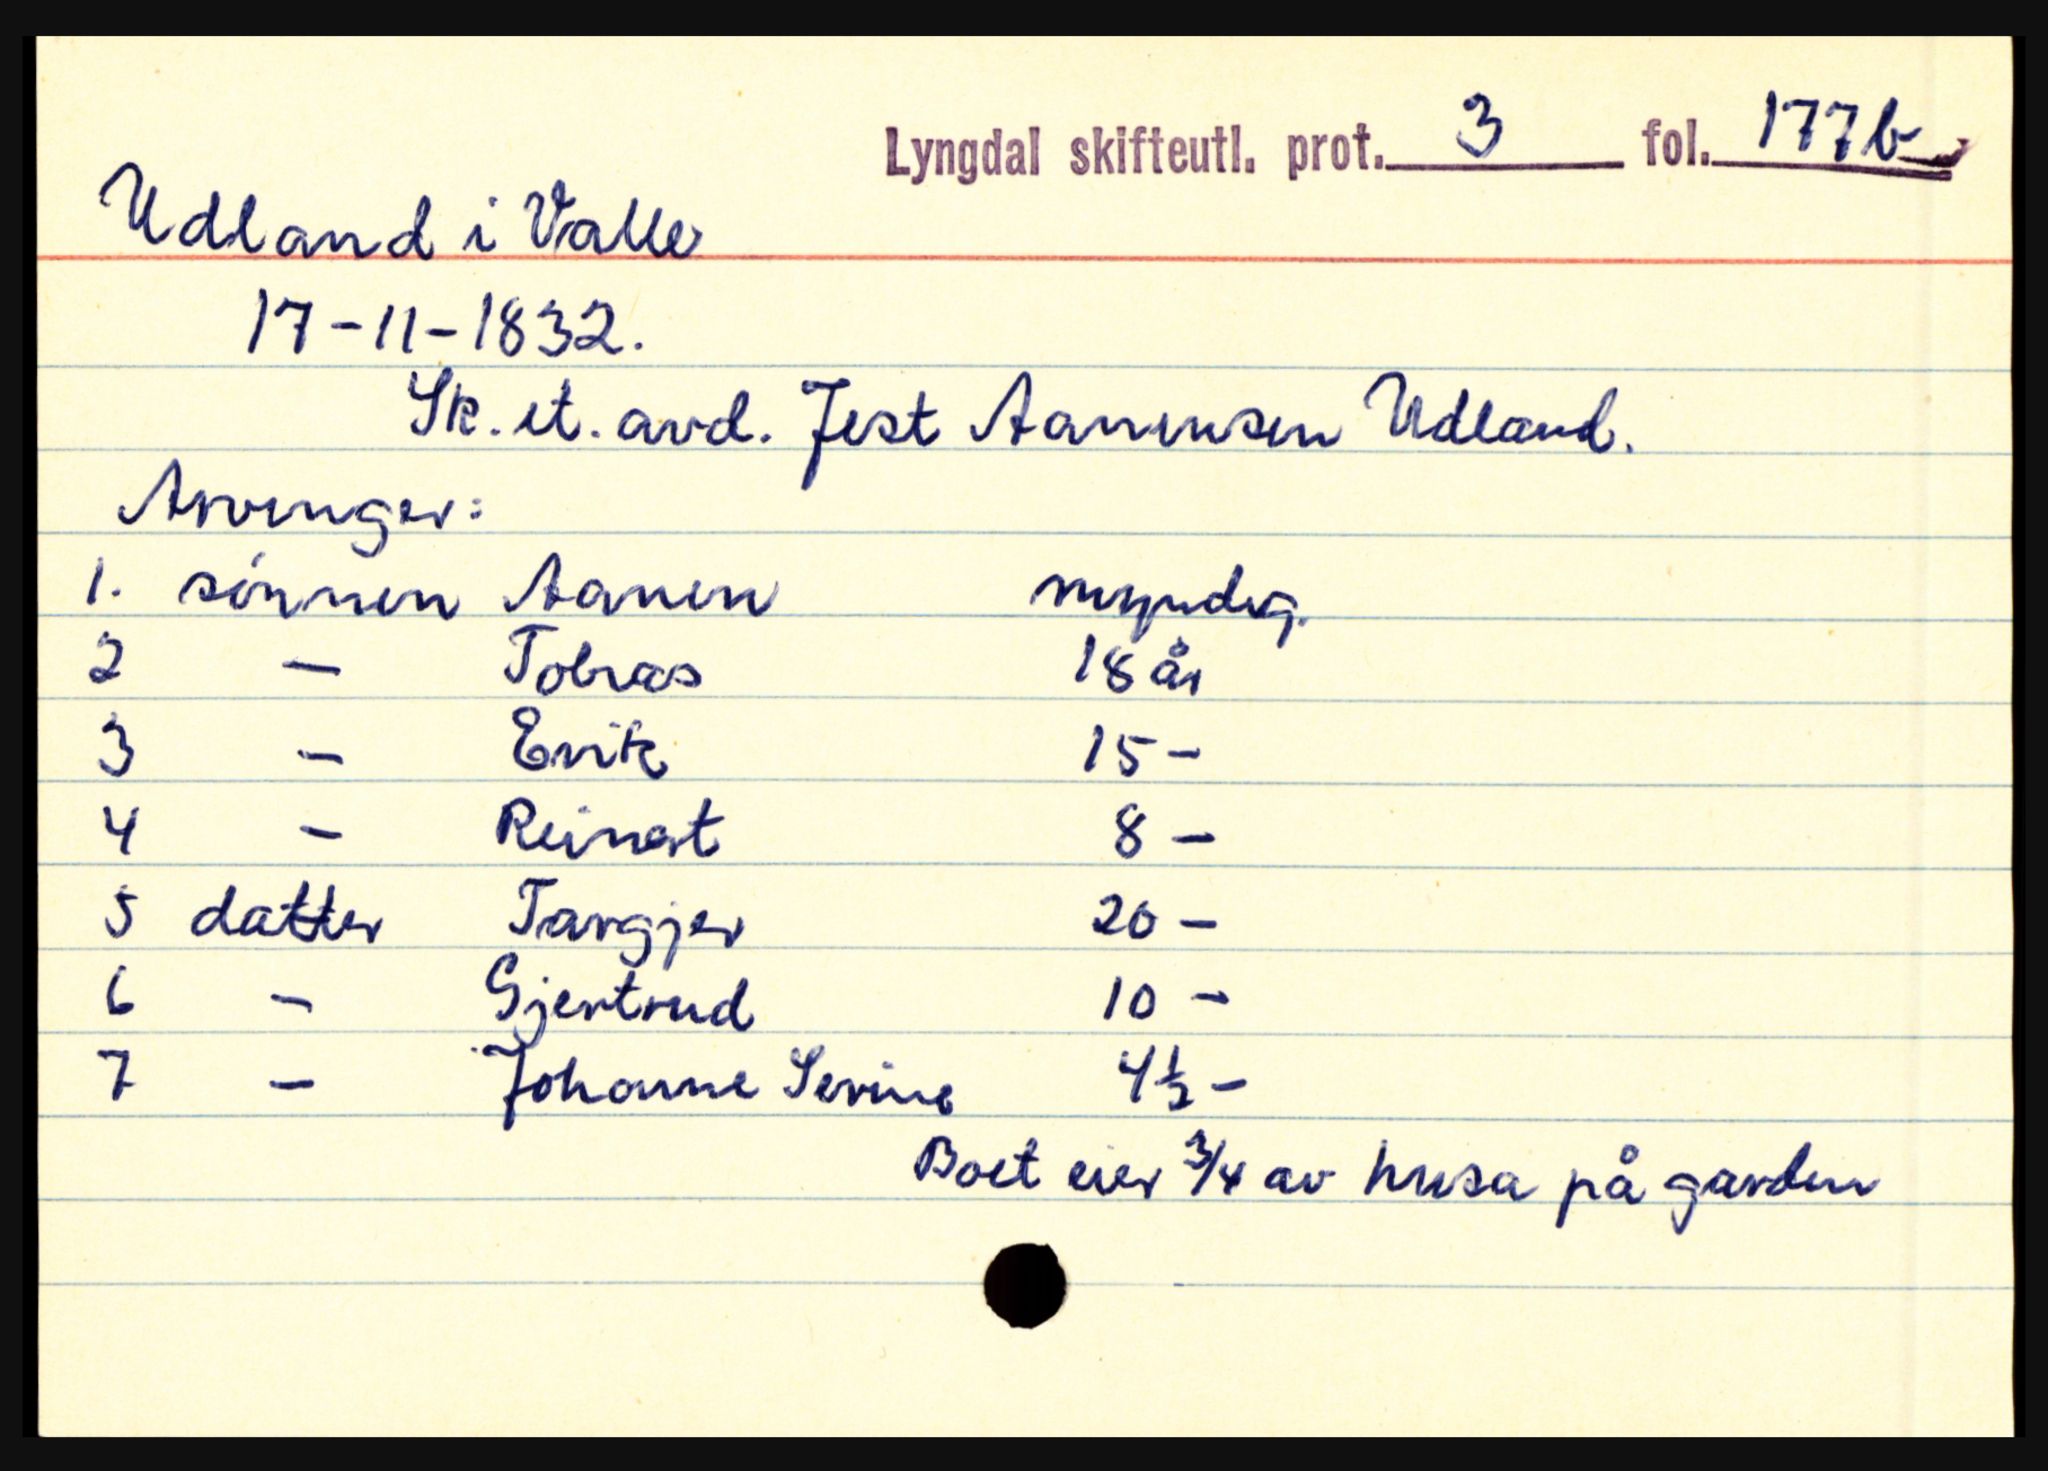 Lyngdal skifteutl. prot. 3 fol. 177b
Udland i Valle
17-11-1832.
Sk. et. avd. Jest Aanensen Udland.
Arvinger:
1. sønnen Aanen myndig.
2 — Tobias 18 år
3 — Erik 15 —
4 — Reinert 8 —
5 datter Targjer 20 —
6 — Gjertrud 10 —
7 — Johanne Serine 4½ —
Boet eier 3/4 av husa på garden